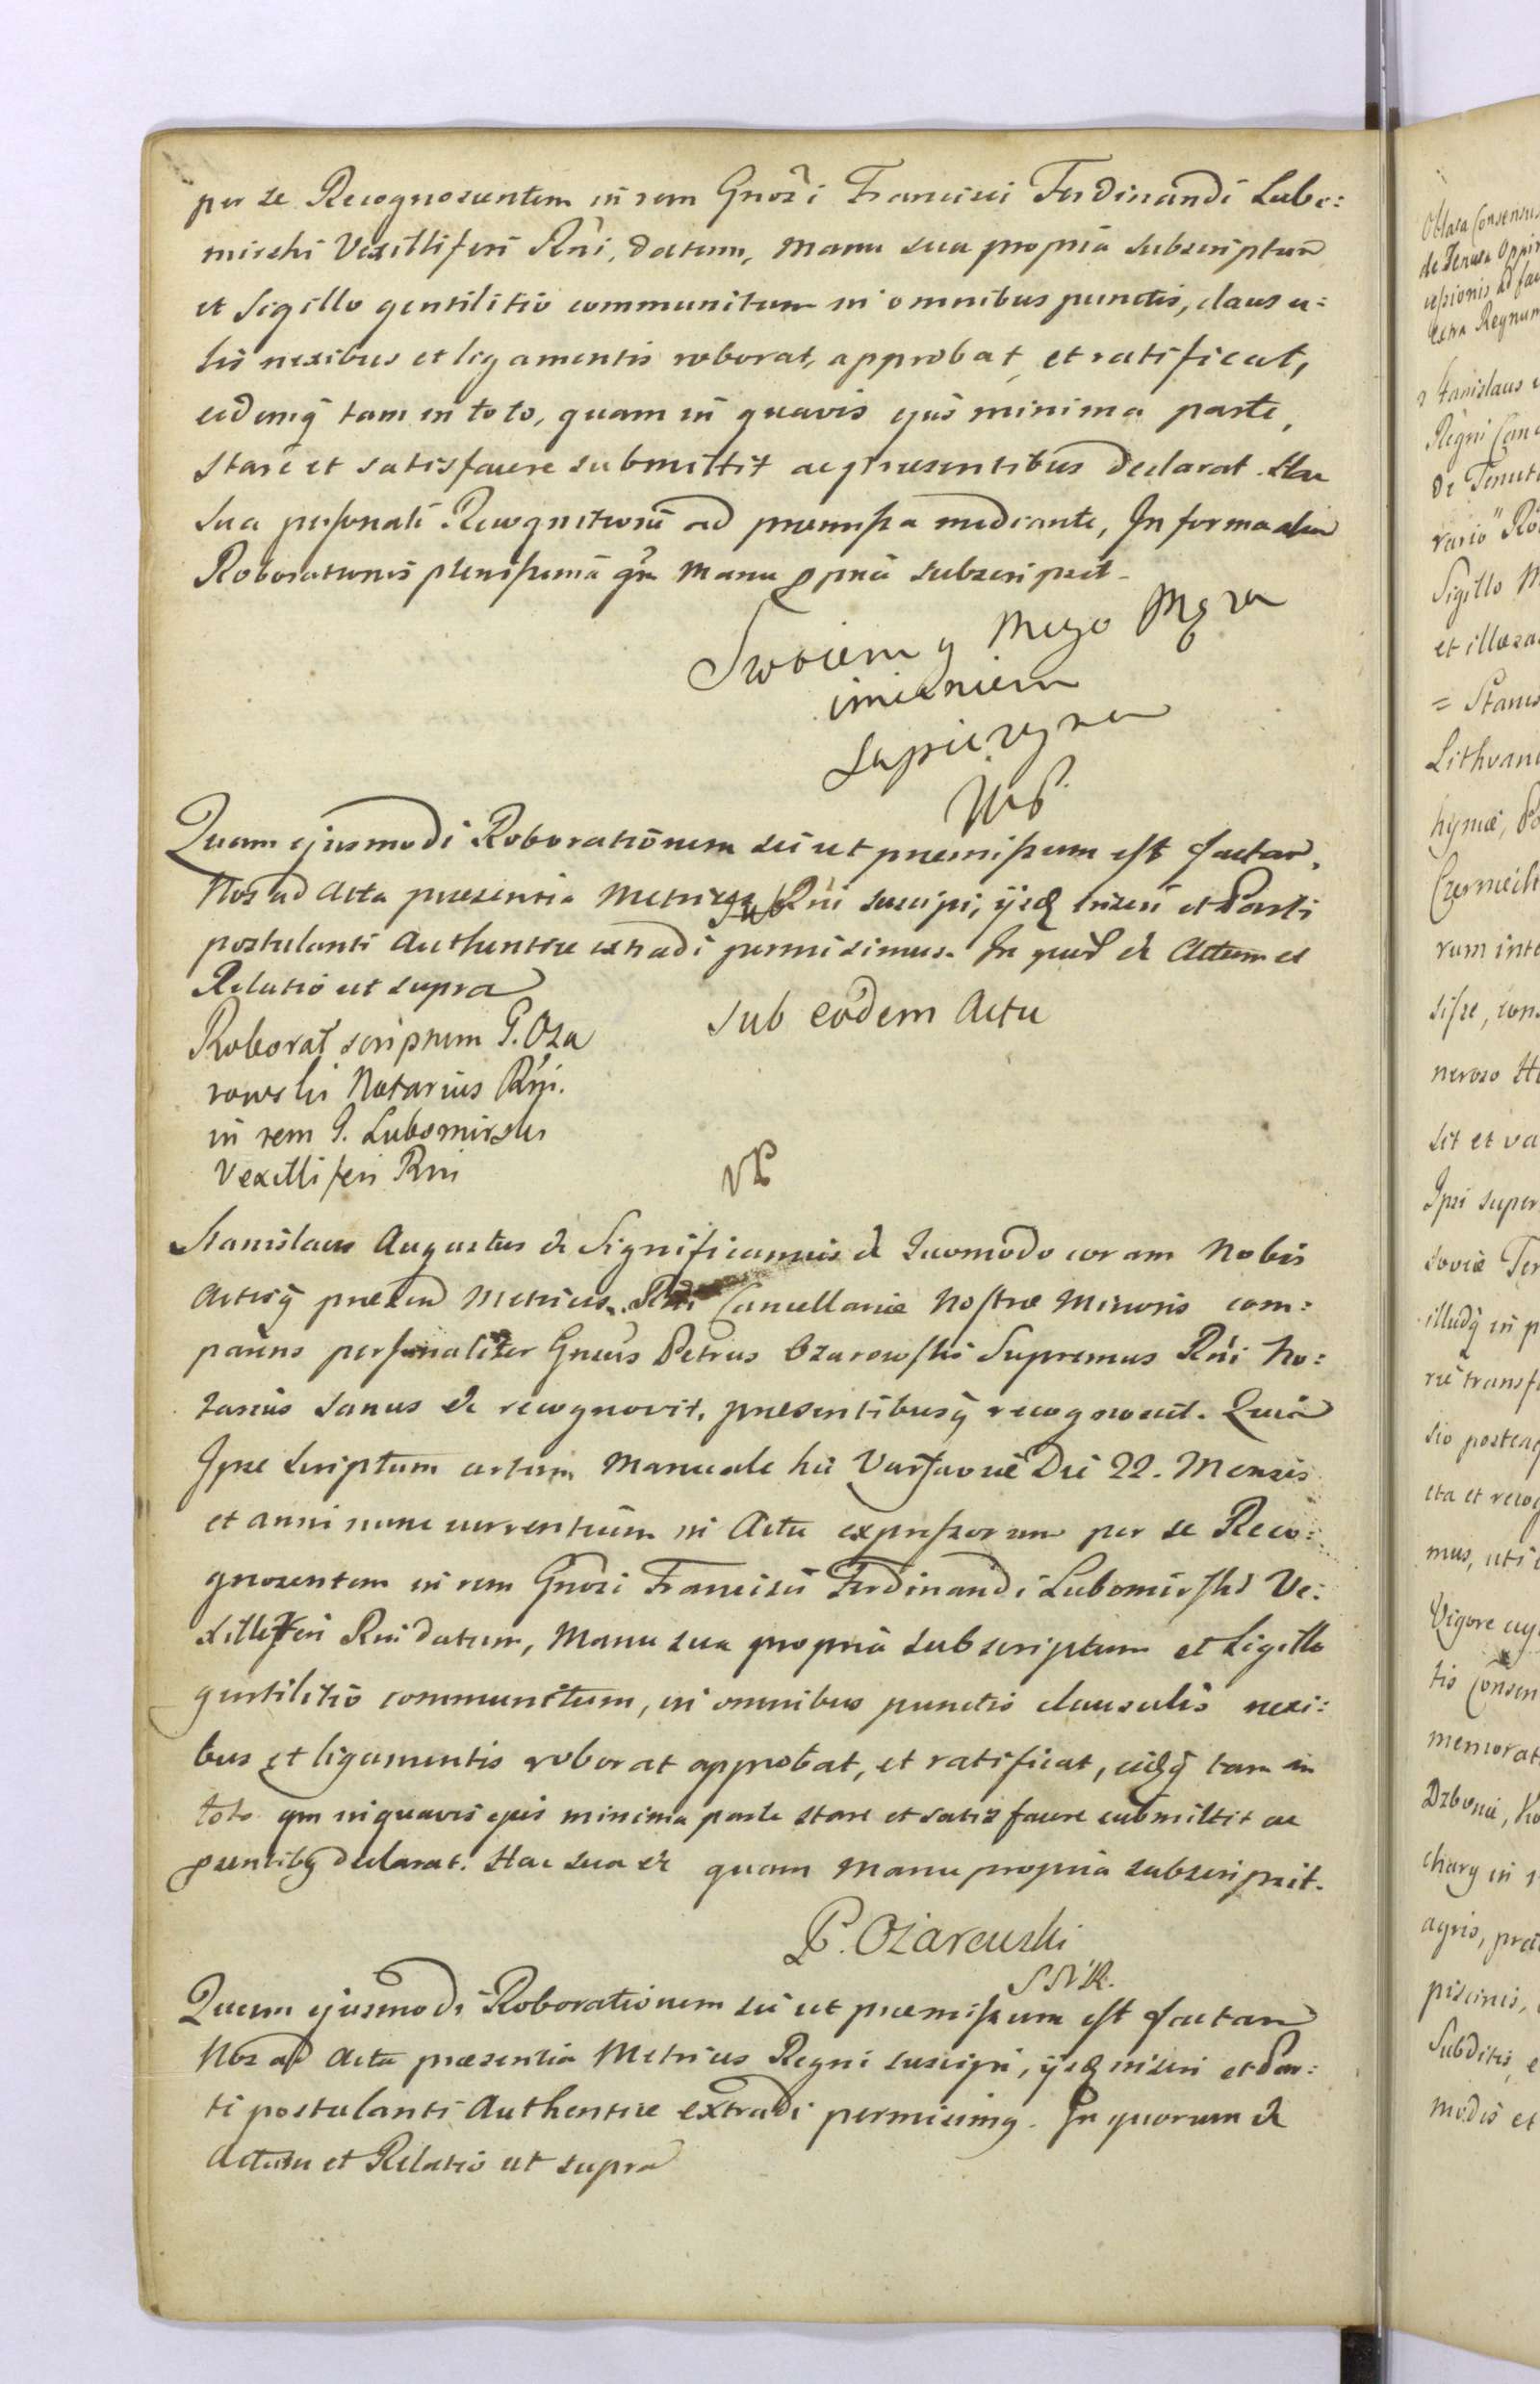 per se Recognoscentem in rem Gnosi Francisci Ferdinandi Lubo:
mirski Vexilliferi Rni, datum, manu sua propria subscriptum
et Sigillo gentilitio communitum in omnibus punctis, clausu:
lis nexibus et ligamentis roborat, approbat, et ratificat,
eidemq tam in toto, quam in quavis ejus minima parte,
stare et satisfacere submittit ac praesentibus declarat. Hac
sua personali Recognitione ad praemissa mediante, In forma
Roborationis plenissima qm Manu ppria subscripsit.
Swoiem y Mego Męza
imieniem
Sapiezyna
Mp.
Quam ejusmodi Roborationem sic ut praemissum est factam,
Nos ad Acta praesentia Metrices Rni suscipi, ijsq inseri et Parti
postulanti Authentice extradi permisimus. In quor & Actum et
Relatio ut supra
Sub eodem Actu
Roborat scriptum G. Oza
rowski Notarius Rni.
in rem G. Lubomirski
Vexilliferi Rni
Stanislaus Augustus & Significamus & Quomodo coram Nobis
Actisq praesen Metrices Rni Cancellariae Nostrae Minoris com:
parens personaliter Gnrus Petrus Ozarowski Supremus Rni No:
tarius sanus & recognovit, praesentibusq recognoscit. Quia
Ipse scriptum certum Manuale hic Varsaviae Die 22. Mensis
et anni nunc currentium in Actu expressorum per se Reco:
gnoscentem in rem Gnosi Francisci Ferdinandi Lubomirski Ve:
xilliferi Rni datum, Manu sua propria subscriptum et Sigillo
gentilitio communitum, in omnibus punctis clausulis nexi:
bus et ligamentis roborat approbat, et ratificat, eidq tam in
toto qm in quavis ejus minima parte stare et satisfacere submittit ac
psentibq declarat. Hac sua & quam Manu propria subscripsit.
P. Ożarowski
S N R.
Quam ejusmodi Roborationem sic ut praemissum est factam
Nos ad Acta praesentia Metrices Regni suscipi, ijsq inseri et Par:
ti postulanti Authentice extradi permisimq. In quorum &
Actum et Relatio ut supra
Oblata Consensus
de Tenuta Oppi
cessionis ad fa
extra Regnum
Stanislaus
Regni Canc
de Tenut
vario
Sigillo M
et illaesa
= Stanis
Lithvani
hyniae, Po
Czerniech
rum inte
sisse, con
neroso
sit et va
Ipsi super
soviae Ter
illudq in p
rie transf
sio postea
cta et recog
mus, uti
Vigore
tis Consen
memorat
Drbonie,
chary in
agris, pra
piscinis,
Subditis, e
modis et